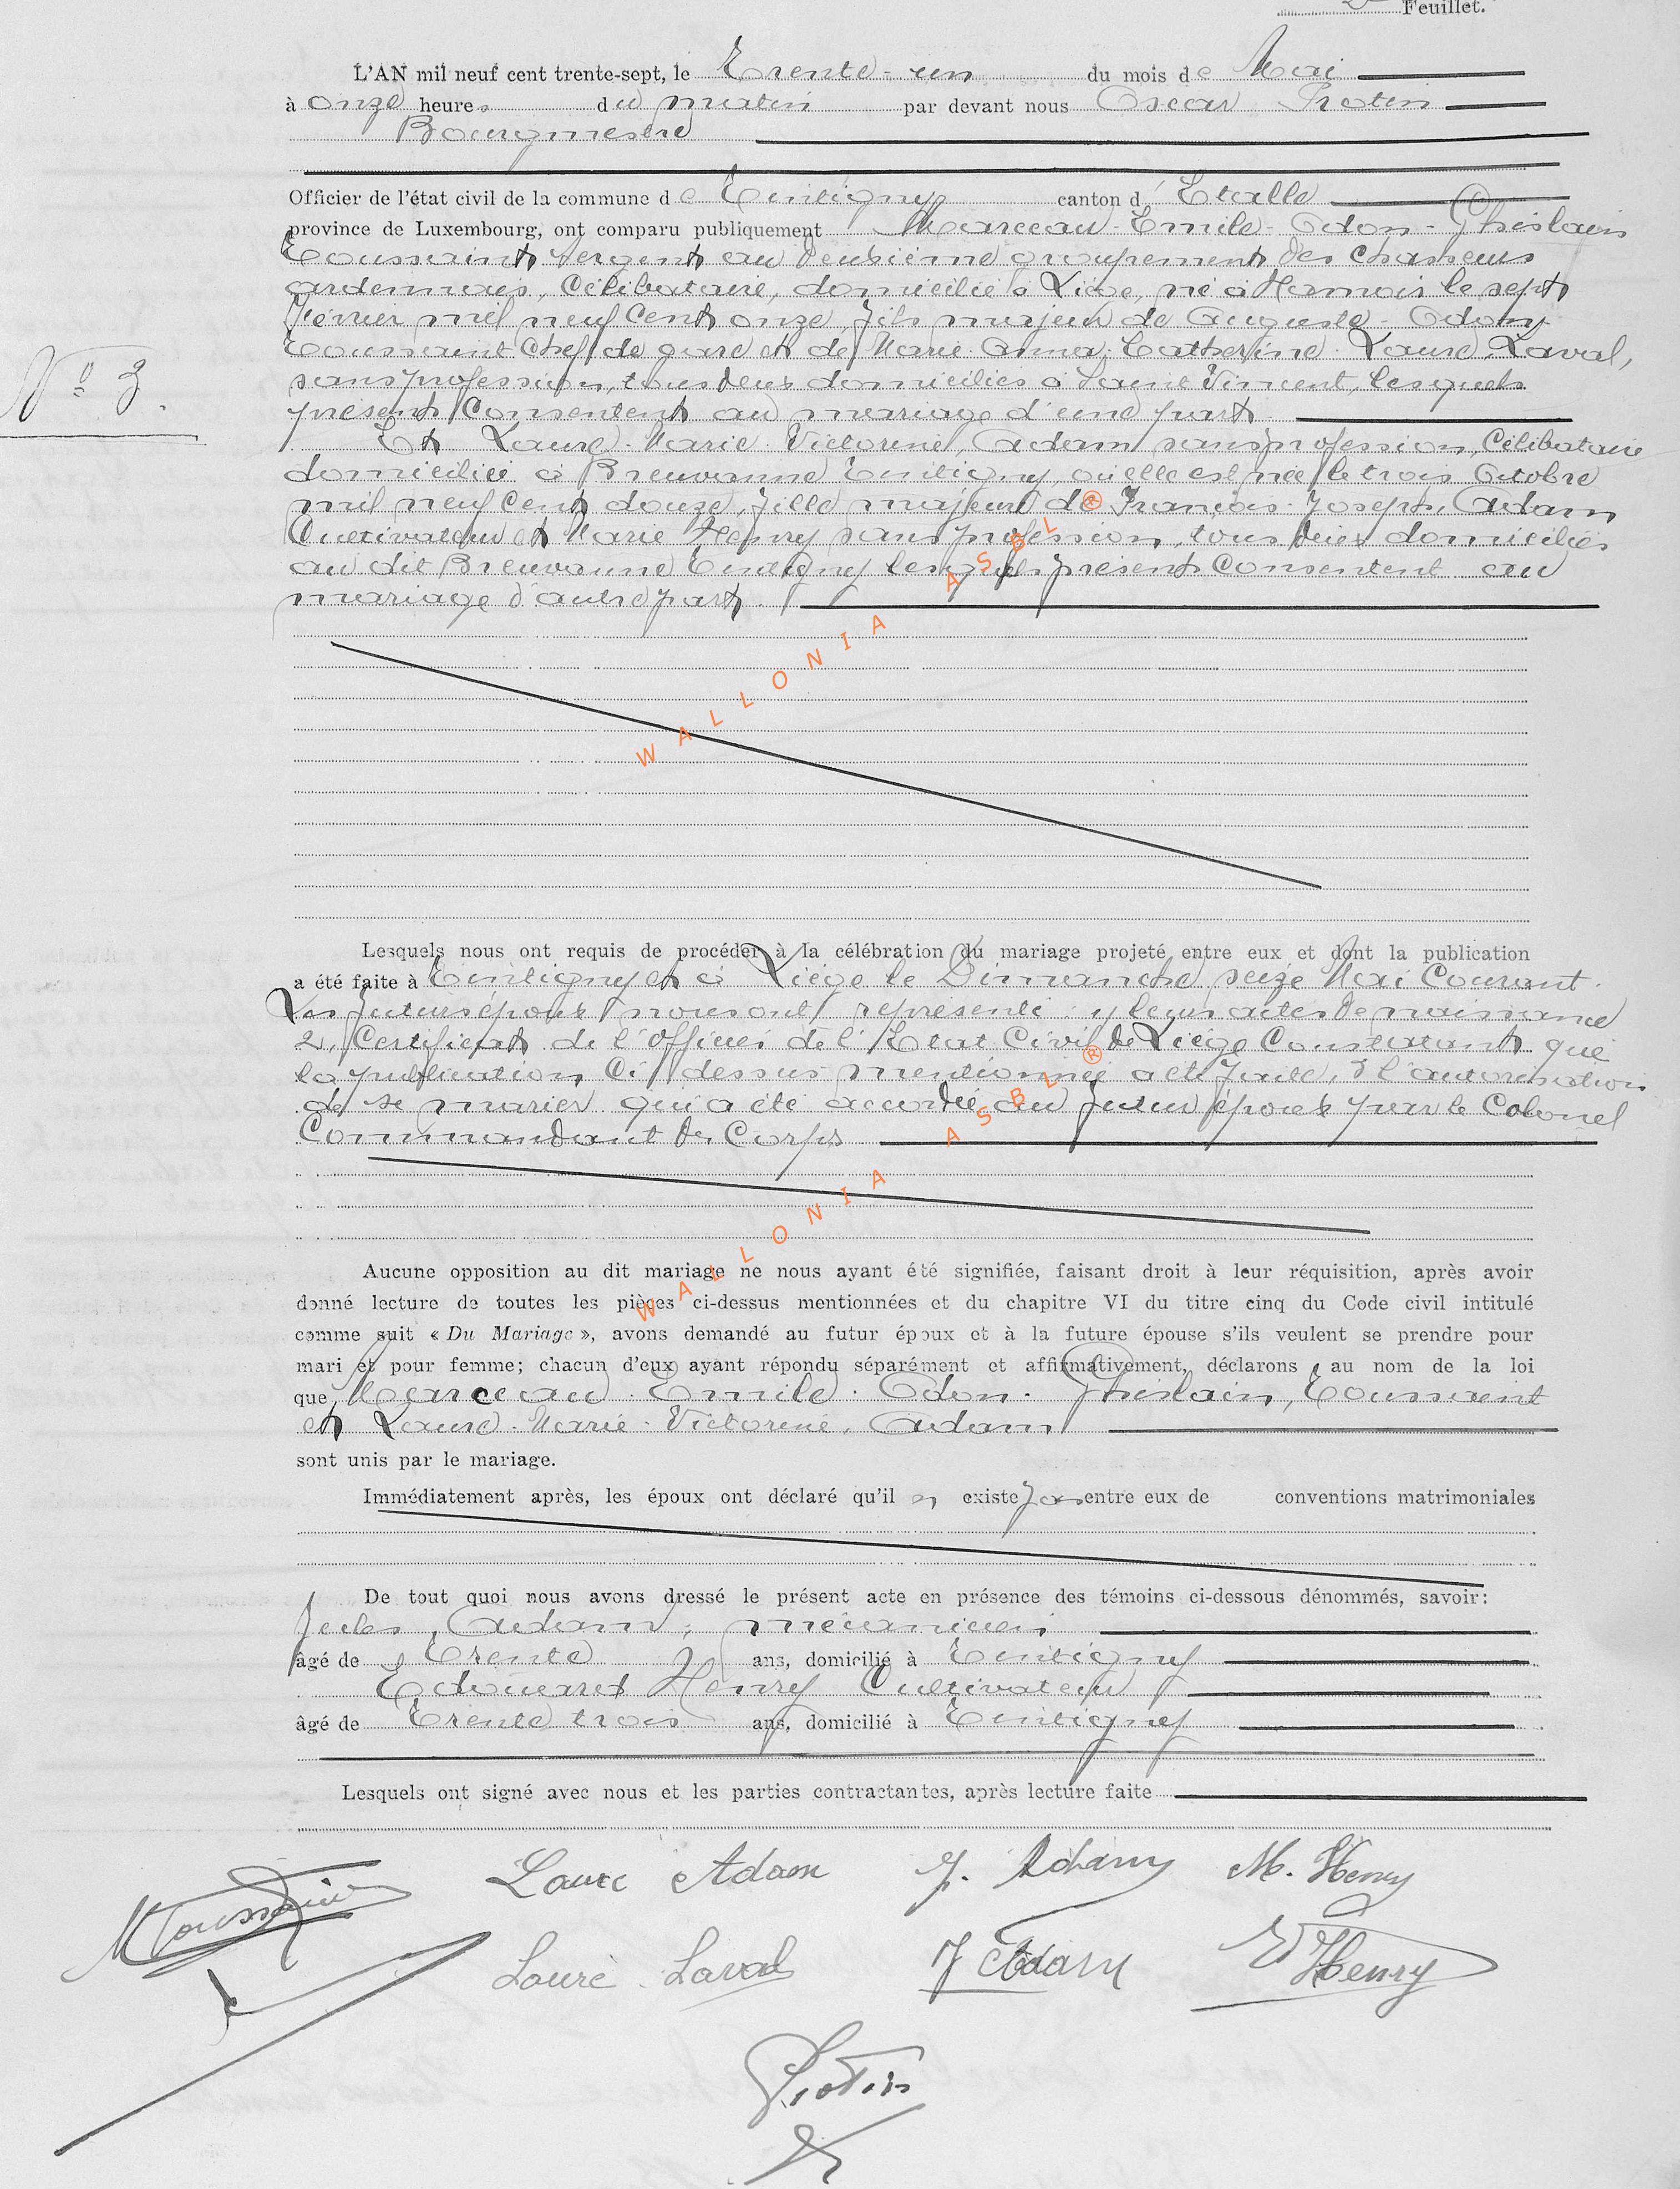 Feuillet.
L'AN mil neuf cent trente-sept, le Trente-un du mois de Mai
à onze heures du matin par devant nous Oscar Protin
Bourgmestre
Officier de l'état civil de la commune de Tintigny canton d'Etalle
province de Luxembourg, ont comparu publiquement Marceau-Emile-Odon-Ghislain
Toussaint sergent au deuxième groupement des chasseurs
ardennais, célibataire, domicilié à Liège, né à le sept
février mil neuf cent onze, fils majeur de Auguste-Odon
Toussaint chef de gare et de Marie-Anna-Catherine-Laure Laval,
sans profession, tous deux domiciliés à Saint Vincent, lesquels
présents consentent au mariage d'une part
N° 3.
Et Laure-Marie-Victorine, Adam sans profession, célibataire
domiciliée à Breuvanne Tintigny, où elle est née le trois octobre
mil neuf cent douze, fille majeure de François-Joseph, Adam
Cultivateur et Marie Henry sans profession, tous deux domiciliés
au dit Breuvanne Tintigny lesquels présents consentent au
mariage d'autre part.
WALLONIA ASBL ®
Lesquels nous ont requis de procéder à la célébration du mariage projeté entre eux et dont la publication
a été faite à Tintigny et à Liège le Dimanche seize Mai courant.
Les futurs époux nous ont représenté: leurs actes de naissance
2, Certificat de l'officier de l'Etat Civil de Liège constatant que
la publication ci-dessus mentionnée a été faite, 3 l'autorisation
de se marier qui a été accordée au futur époux par le Colonel
Commandant de Corps
WALLONIA ASBL ®
Aucune opposition au dit mariage ne nous ayant été signifiée, faisant droit à leur réquisition, après avoir
donné lecture de toutes les pièces ci-dessus mentionnées et du chapitre VI du titre cinq du Code civil intitulé
comme suit « Du Mariage », avons demandé au futur époux et à la future épouse s'ils veulent se prendre pour
mari et pour femme; chacun d'eux ayant répondu séparément et affirmativement, déclarons au nom de la loi
que Marceau-Emile-Odon-Ghislain, Toussaint
et Laure-Marie-Victorine, Adam
sont unis par le mariage.
Immédiatement après, les époux ont déclaré qu'il n existe pas entre eux de conventions matrimoniales
De tout quoi nous avons dressé le présent acte en présence des témoins ci-dessous dénommés, savoir:
Jules, Adam, mécanicien
âgé de Trente ans, domicilié à Tintigny
Edouard Henry Cultivateur
âgé de Trente trois ans, domicilié à Tintigny
Lesquels ont signé avec nous et les parties contractantes, après lecture faite
M Toussaint Laure Adam J. Adam M. Henry
Laure Laval J Adam E Henry
Protin